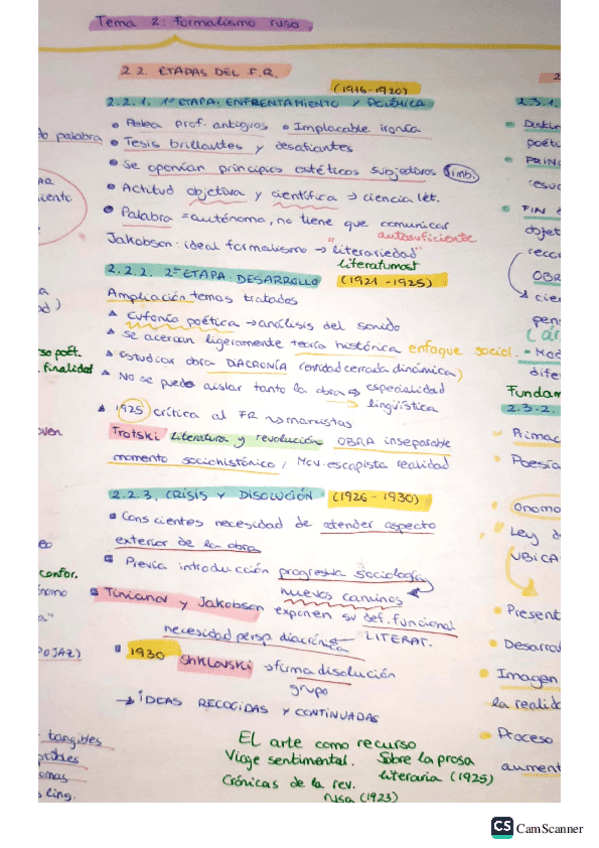 Tema 2: Formalismo ruso.
2.2. ETAPAS DEL F.R.
(1916-1920)
2.2.1. 1ª ETAPA: ENFRENTAMIENTO Y POLÉMICA
Pelea prof. antiguos • Implacable ironía
Tesis brillantes y desafiantes
Se oponían principios estéticos subjetivos (simb.
Actitud objetiva y científica → ciencia lit.
Palabra = autónoma, no tiene que comunicar
autosuficiente
Jakobson: ideal formalismo → "literariedad"
literaturnost
2.2.2. 2ª ETAPA: DESARROLLO (1921-1925)
Ampliación temas tratados
Eufonía poética → análisis del sonido
Se acercan ligeramente teoría histórica enfoque sociol.
Estudiar obra DIACRONÍA (entidad cerrada dinámica)
No se puede aislar tanto la obra → especialidad
lingüística
1925 crítica al FR → marxistas
Trotski Literatura y revolución OBRA inseparable
momento sociohistórico / Mov. escapista realidad
2.2.3. CRISIS Y DISOLUCIÓN (1926-1930)
Conscientes necesidad de atender aspecto
exterior de la obra
Previa introducción progresiva sociología
nuevos caminos
Tinianov y Jakobson exponen su def. funcional
necesidad persp. diacrónica LITERAT.
1930 Shklovski → firma disolución
grupo
→ IDEAS RECOGIDAS Y CONTINUADAS
El arte como recurso
Viaje sentimental. Sobre la prosa
literaria (1925)
Crónicas de la rev.
rusa (1923)
palabra
iento
so poét.
finalidad
oven
confor.
POJAZ)
tangibles
ling.
2.3.1.
Distin
poétu
PRIN
FIN
objet
OBR
cien
pen
Mod
dife
Fundam
2.3.2.
Primac
Poesía
Onomo
Ley d
UBICA
Present
Desarro
Imagen
la realid
Proceso
aument
CS CamScanner